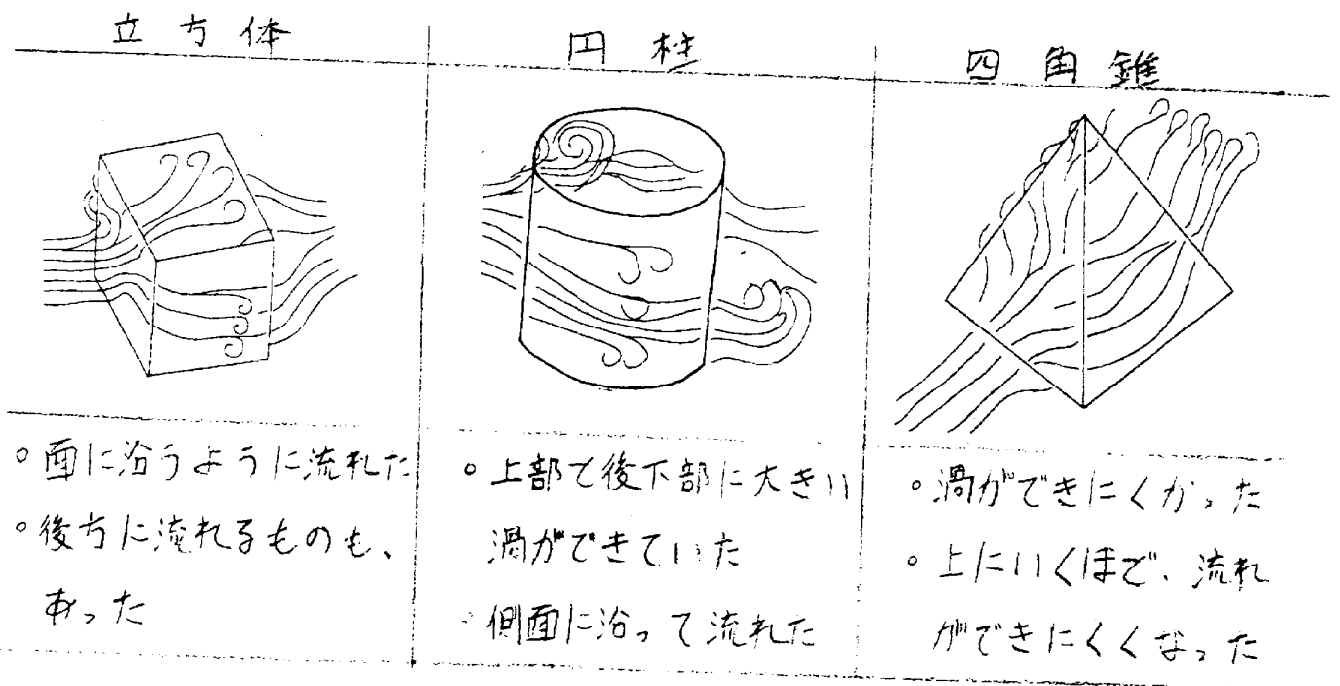 立方体
円柱
四角錐
○面に沿うように流れた
○後方に流れるものも、
あった
○上部と後下部に大きい
渦ができていた
○側面に沿って流れた
○渦ができにくかった
○上にいくほど、流れ
ができにくくなった